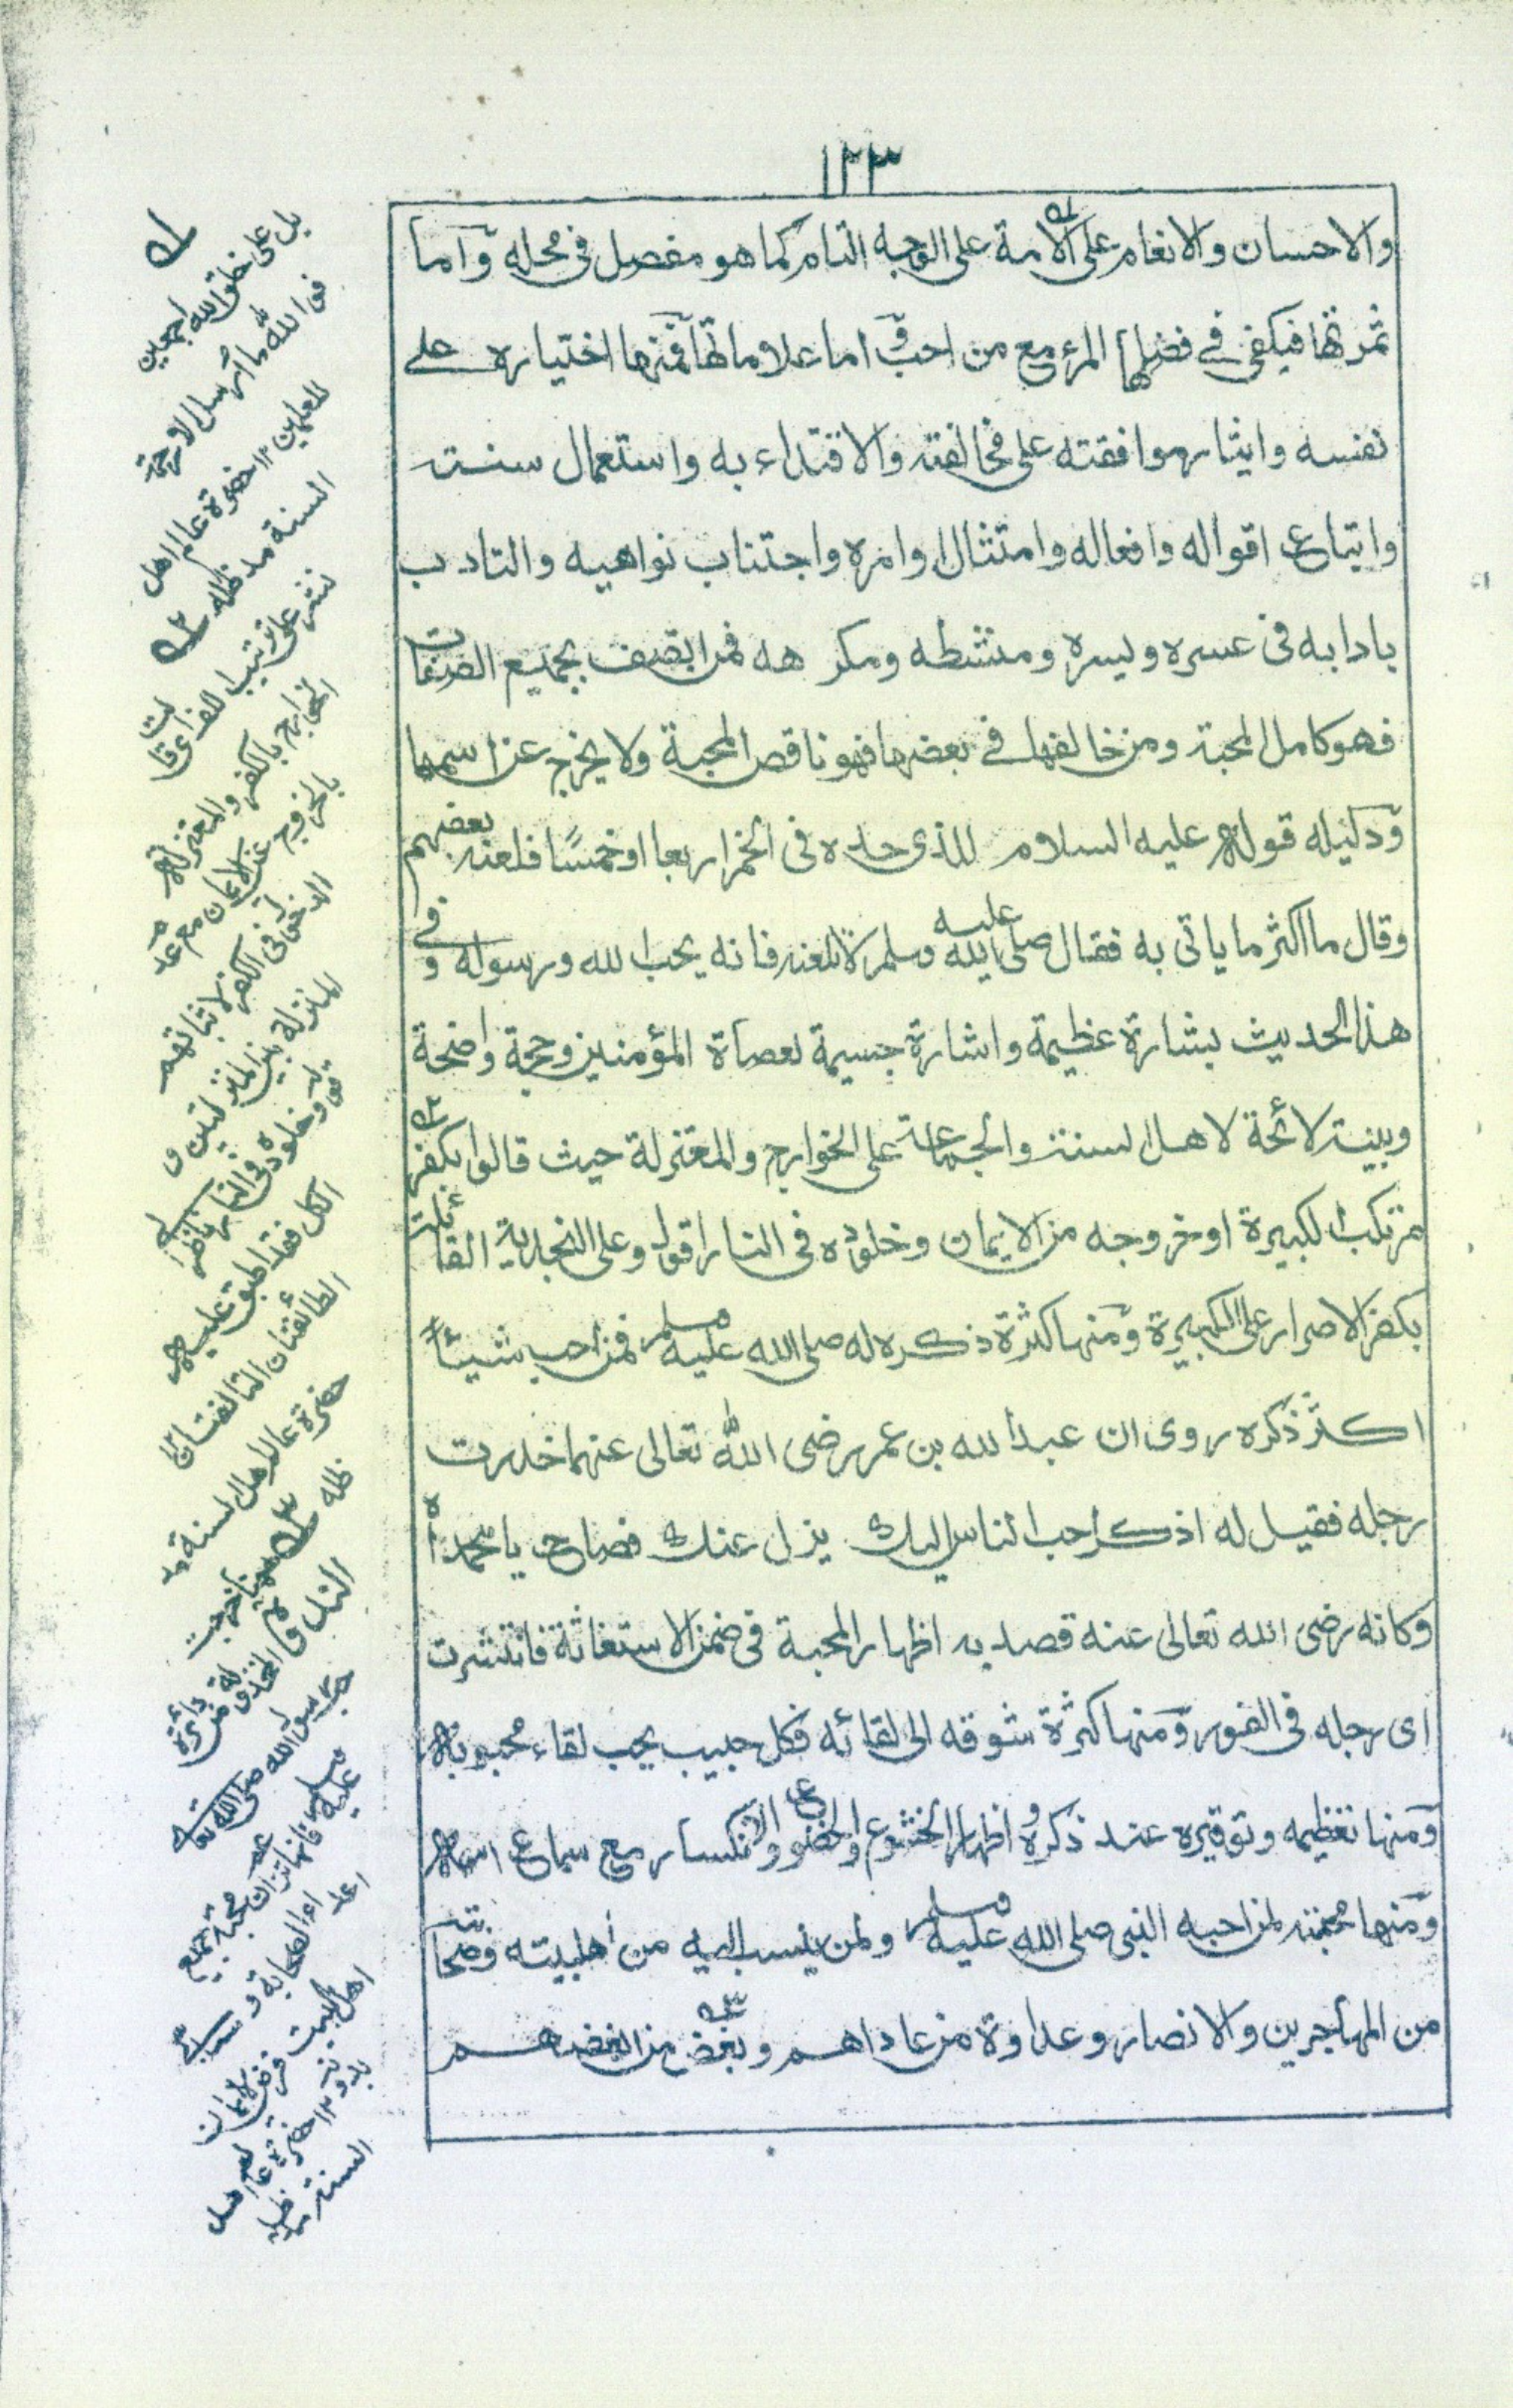 ١٢٣
والاحسان والانعام على الامة على الوجه التام كما هو مفصل فى محله وآما
ثمرتها فيكفى فى فضلها المرء مع من احب وآما علاماتها فمنها اختياره على
نفسه وايثار موافقته على مخالفته والاقتداء به واستعمال سنته
واتباع اقواله وافعاله وامتثال اوامره واجتناب نواهيه والتادب
بادابه فى عسره ويسره ومنشطه ومكرهه فمن اتصف بجميع الصفات
فهو كامل المحبة ومن خالفها فى بعضها فهو ناقص المحبة ولا يخرج عن اسمها
ودليله قوله عليه السلام للذى حده فى الخمر اربعا او خمسًا فلعنه بعضهم
وقال ما اكثر ما ياتى به فقال صلى الله عليه وسلم لا تلعنه فانه يحب الله ورسوله وفى
هذا الحديث بشارة عظيمة واشارة جسيمة لعصاة المؤمنين وحجة واضحة
وبينة لائحة لاهل السنة والجماعة على الخوارج والمعتزلة حيث قالوا بكفر
مرتكب الكبيرة او خروجه من الايمان وخلوده فى النار اقول وعلى النجدية القائلة
بكفر الاصرار على الكبيرة ومنها كثرة ذكره له صلى الله عليه وسلم فمن احب شيئاً
اكثر ذكره روى ان عبد الله بن عمر رضى الله تعالى عنهما خدرت
رجله فقيل له اذكر احب الناس اليك يزل عنك فصاح يا محمداه
وكانه رضى الله تعالى عنه قصد به اظهار المحبة فى ضمن الاستغاثة فانتشرت
اى رجله فى الفور ومنها كثرة شوقه الى لقائه فكل حبيب يحب لقاء محبوبه
ومنها تعظيمه وتوقيره عند ذكره واظهار الخشوع والخضوع والانكسار مع سماع اسمه
ومنها محبته لمن احبه النبى صلى الله عليه وسلم ولمن ينسب اليه من اهل بيته وصحابته
من المهاجرين والانصار وعداوة من عاداهم وبغض من ابغضهم
بل على خلق الله اجمعين
فو الله ما ارسل الا رحمة
للعلمين ١٢ حضرة عالم اهل
السنة مد ظله
نشر على ترتيب اللف
الخوارج بالكفر والمعتزلة
بالخروج عن الايمان مع عدم
الدخول فى الكفر لاثباتهم
المنزلة بين المنزلتين و
خلوده فى النار
الكل فقد اطبق عليه
الطائفتان التالفتان ١٢
حضرة عالم اهل السنة مد
ظله
حب رسول الله صلى الله تعالى
عليه وسلم
اهل البيت
حضرة عالم اهل
السنة مد ظله